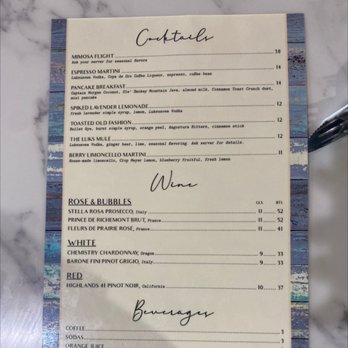 Cocktails
MIMOSA FLIGHT 18
Ask your server for seasonal flavors
ESPRESSO MARTINI 14
Luksusowa Vodka, Copa De Oro Coffee Liqueur, espresso, coffee bean
PANCAKE BREAKFAST 14
Captain Morgan Coconut, Ole' Smokey Mountain Java, almond milk, Cinnamon Toast Crunch dust,
mini pancake
SPIKED LAVENDER LEMONADE 12
Fresh lavender simple syrup, lemon, Luksusowa Vodka
TOASTED OLD FASHION 12
Bullet Rye, burnt simple syrup, orange peel, Angostura Bitters, cinnamon stick
THE LUKS MULE 12
Luksusowa Vodka, ginger beer, lime, seasonal flavoring. Ask server for details.
BERRY LIMONCELLO MARTINI 11
House-made limoncello, Crop Meyer lemon, blueberry fruitful, fresh lemon
Wine
ROSE & BUBBLES GLS BTL
STELLA ROSA PROSECCO, Italy 11 52
PRINCE DE RICHEMONT BRUT, France 11 52
FLEURS DE PRAIRIE ROSE, France 11 41
WHITE
CHEMISTRY CHARDONNAY, Oregon 9 33
BARONE FINI PINOT GRIGIO, Italy 9 33
RED
HIGHLANDS 41 PINOT NOIR, California 10 37
Beverages
COFFEE 3
SODAS 3
ORANGE JUICE